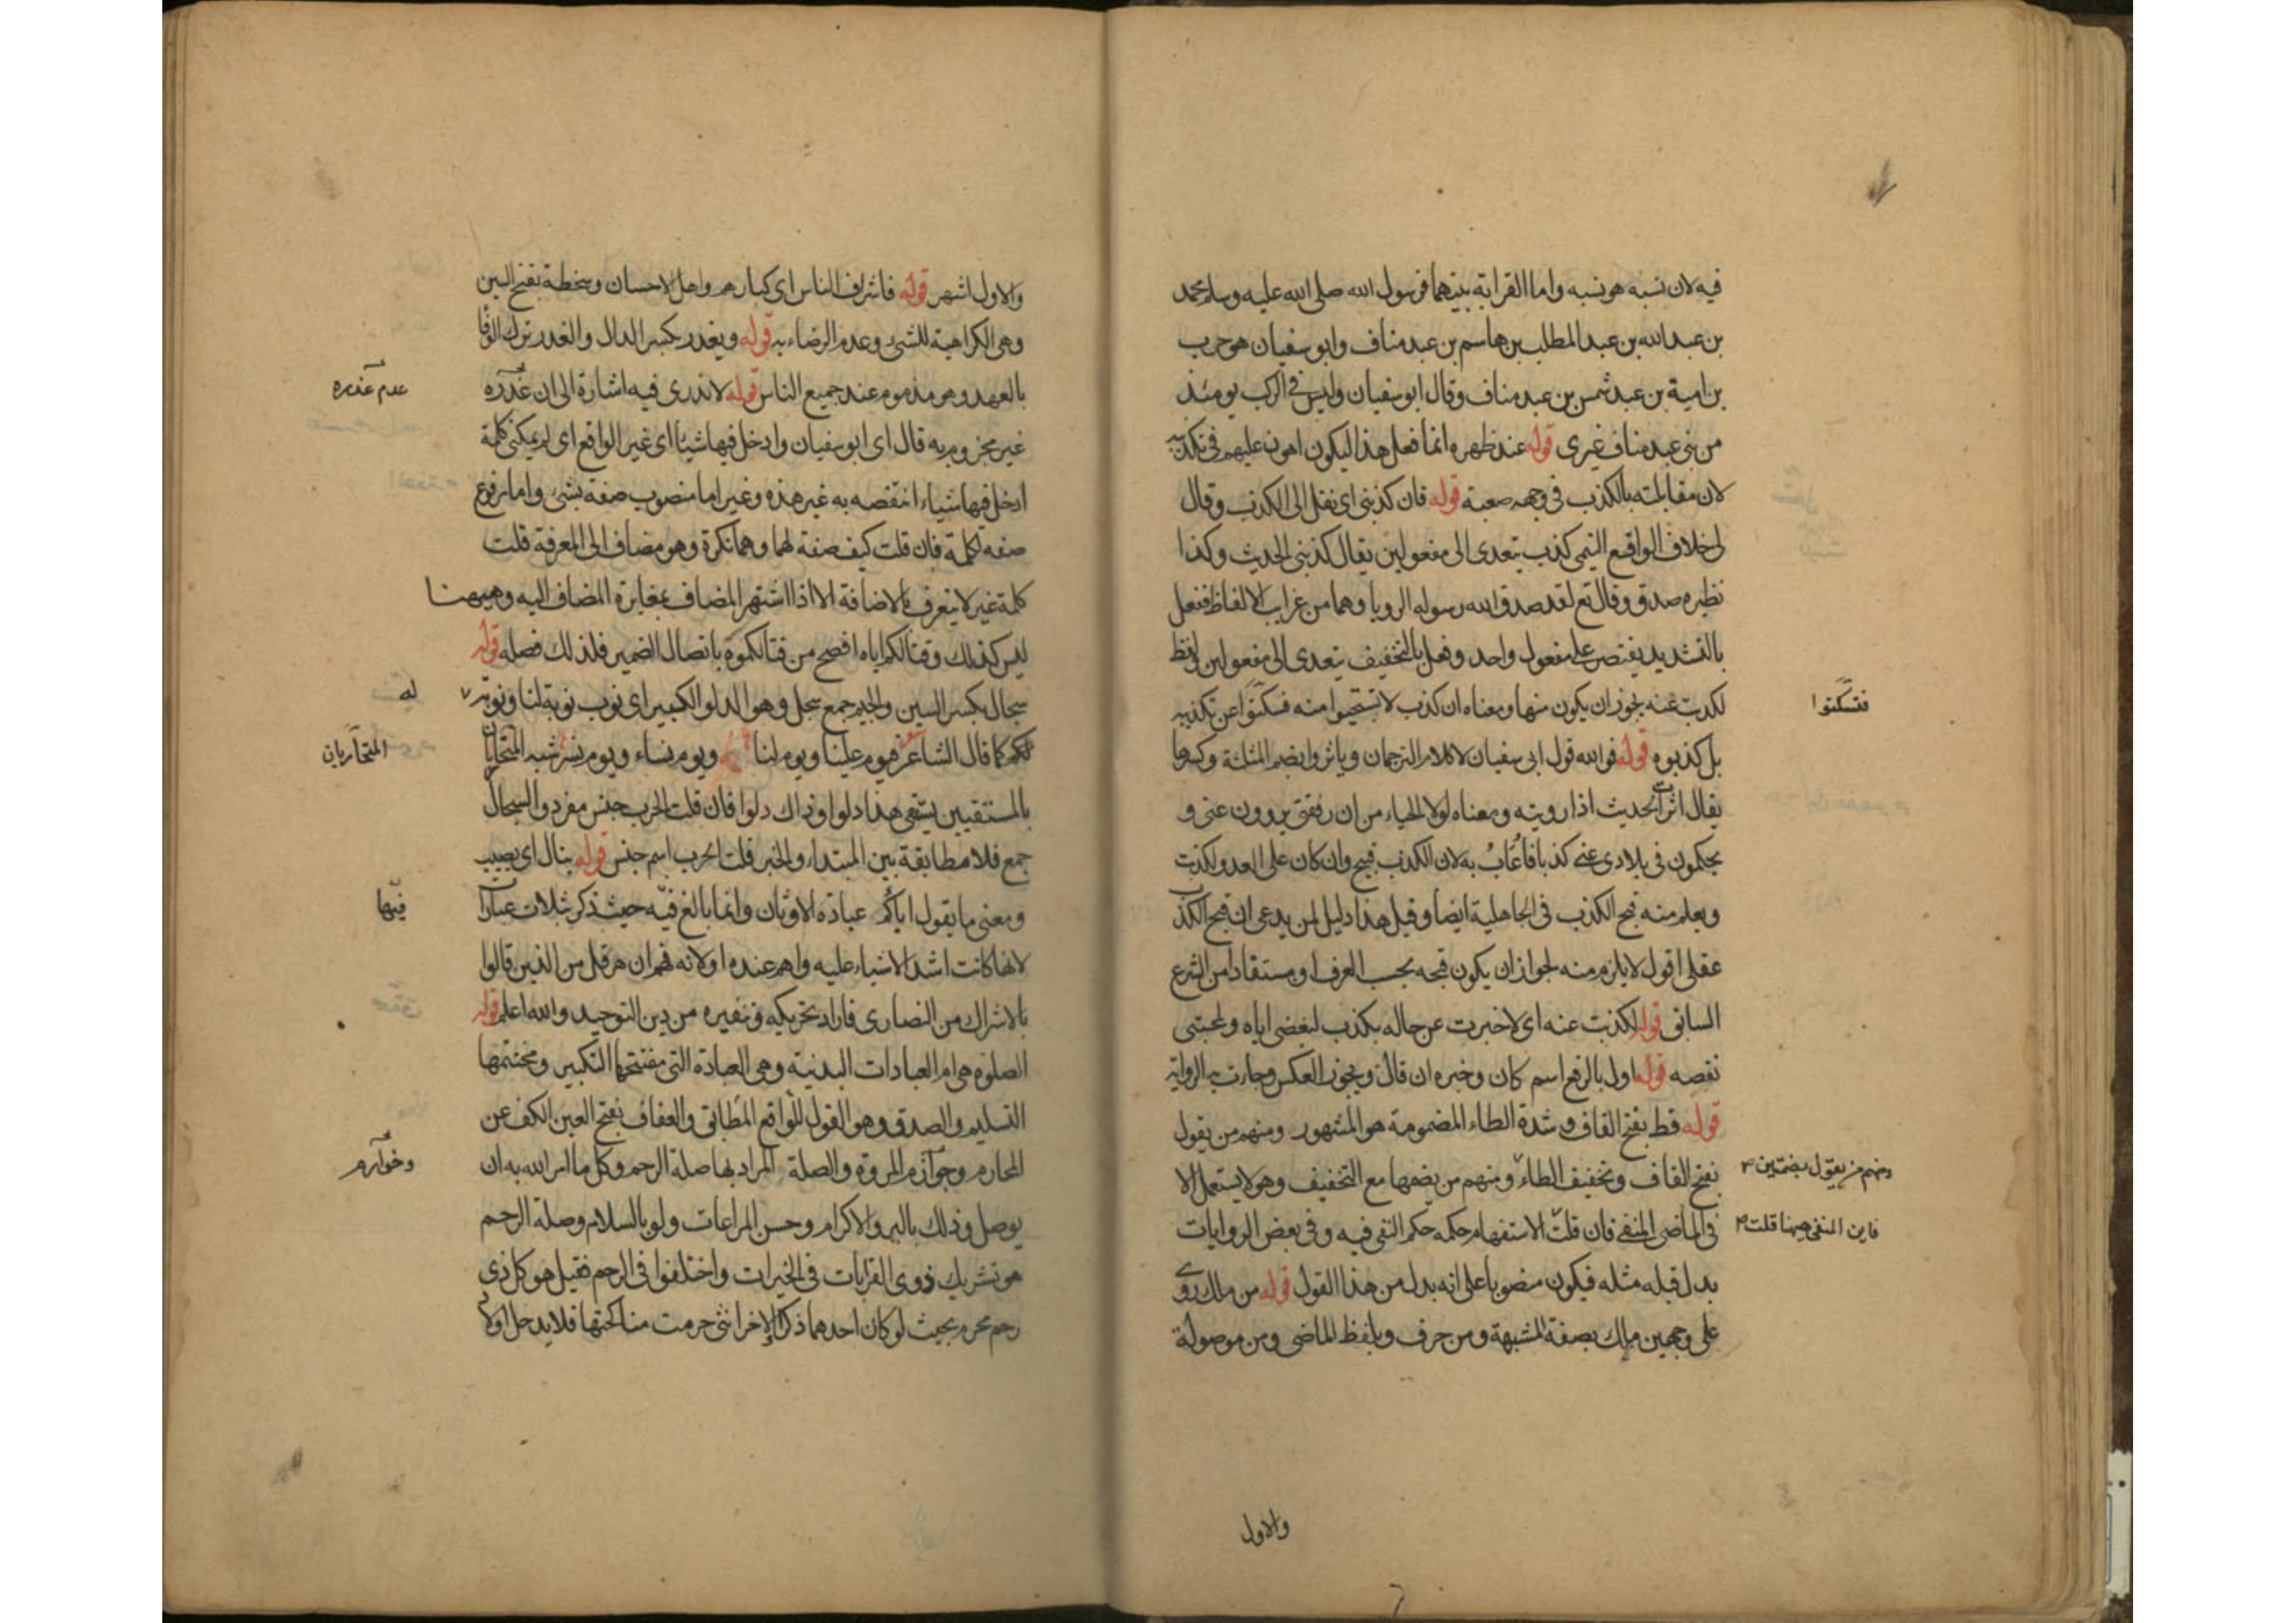 فيه لان نسبه هو نسبه واما القرابة بينهما فرسول الله صلى الله عليه وسلم محمد
بن عبد الله بن عبد المطلب بن هاشم بن عبد مناف وابو سفيان هو حرب
بن امية بن عبد شمس بن عبد مناف وقال ابو سفيان وليس في الركب يومئذ
من بني عبد مناف غيري قوله عند ظهره انما فعل هذا ليكون اهون عليهم في تكذيبه
لان مقابلته بالكذب في وجهه صعبة قوله فان كذبني اي نقل الى الكذب وقال
لي خلاف الواقع التيمي كذب يتعدى الى مفعولين يقال كذبني الحديث وكذا
نظيره صدق وقال تع لقد صدق الله رسوله الرويا وهما من غرايب الالفاظ ففعل
بالتشديد يقتصر على مفعول واحد وفعل بالتخفيف يتعدى الى مفعولين لفظ
لكذبت عنه يجوز ان يكون منها ومعناه ان كذب لا تستحيوا منه فسكتوا عن تكذيبه
فتسكتوا
بل كذبوه قوله فوالله قول ابي سفيان لا كلام الترجمان وياثروا بضم المثلثة وكسرها
يقال اثرت الحديث اذا رويته ومعناه لولا الحياء من ان رفقتي يروون عني و
يحكمون في بلادي عني كذبا فاعاب به لان الكذب قبيح وان كان على العدو لكذبت
ويعلم منه قبح الكذب في الجاهلية ايضا وقيل هذا دليل لمن يدعي ان قبح الكذب
عقلي اقول لا يلزم منه لجواز ان يكون قبحه بحسب العرف او مستفادا من الشرع
السابق قوله لكذبت عنه اي لاخبرت عن حاله بكذب لبغضي اياه ولمحبتي
نقصه قوله اول بالرفع اسم كان وخبره ان قال ويجوز العكس وجاءت به الرواية
قوله قط بفتح القاف وشدة الطاء المضمومة هو المشهور ومنهم من يقول
بفتح القاف وتخفيف الطاء ومنهم من يضمها مع التخفيف وهو لا يستعمل الا
ومنهم من يقول بضمتين
في الماضي المنفي فان قلت الاستفهام حكمه حكم النفي فيه وفي بعض الروايات
فاين المنفي ههنا قلت
بدل قبله مثله فيكون منصوبا على انه بدل من هذا القول قوله من ملك روي
على وجهين ملك بصفة المشبهة ومن حرف وبلفظ الماضي ومن موصولة
والاول
والاول اشهر قوله فاشراف الناس اي كبارهم واهل الاحسان وسخطة بفتح السين
وهي الكراهية للشئ وعدم الرضاء به قوله ويغدر بكسر الدال والغدر ترك الوفا
بالعهد وهو مذموم عند جميع الناس قوله لا ندري فيه اشارة الى ان غدره
عدم غدره
غير مجزوم به قال اي ابو سفيان وادخل فيها شيئا اي غير الواقع اي لم يمكني كلمة
ادخل فيها شياء انتقصه به غير هذه وغير اما منصوب صفة بشئ واما رفوع
صفه لكلمة فان قلت كيف صفة لهما وهما نكرة وهو مضاف الى المعرفة قلت
كلمة غير لا يتعرف بالاضافة الا اذا اشتهر المضاف بمغايرة المضاف اليه وههنا
ليس كذلك وقتالكم اياه افصح من قتالكموه باتصال الضمير فلذلك فصله قوله
سجال بكسر السين والجيم جمع سجل وهو الدلو الكبير اي نوب نوبة لنا ونوبة
له
لكم كما قال الشاعر فيوم علينا ويوم لنا ويوم نساء ويوم نسر شبه المتحاربان
المتحاربان
بالمستقيين يستقي هذا دلوا وذاك دلوا فان قلت الحرب جنس مفرد والسجال
جمع فلا مطابقة بين المبتداء والخبر قلت الحرب اسم جنس قوله ينال اي يصيب
ومعنى ما يقول اباكم عبادة الاوثان وانما بالغ فيه حيث ذكر بثلاث عبارات
فيها
لانها كانت اشد الاشياء عليه واهم عنده او لانه فهم ان هرقل من الذين قالوا
بالاشراك من النصارى فاراد تحريكه وتنفيره من دين التوحيد والله اعلم قوله
الصلوة هي ام العبادات البدنية وهي العبادة التي مفتتحها التكبير ومختتمها
التسليم والصدق وهو القول للواقع المطابق والعفاف بفتح العين الكف عن
المحارم وخوارم المروة والصلة المراد بها صلة الرحم وكل ما امر الله به ان
وخوارم
يوصل وذلك بالبر والاكرام وحسن المراعات ولو بالسلام وصلة الرحم
هو تشريك ذوي القرابات في الخيرات واختلفوا في الرحم فقيل هو كل ذي
رحم محرم بحيث لو كان احدهما ذكرا والاخر انثى حرمت مناكحتها فلا يدخل اولاد